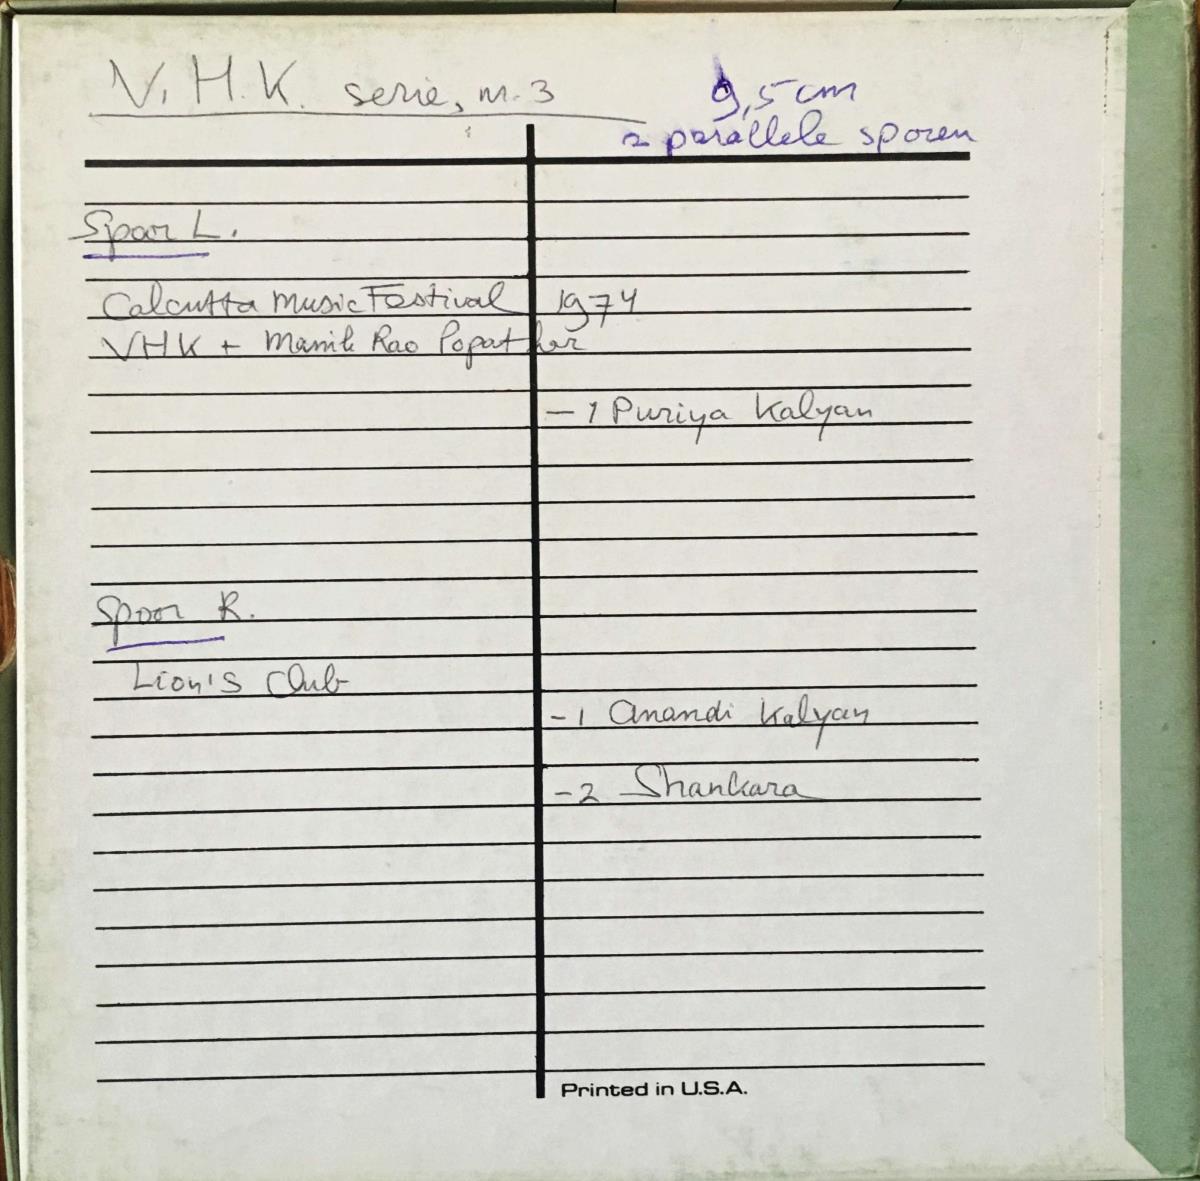 V.H.K. serie, nr. 3
9,5 cm
2 parallele sporen
Spoor L.
Calcutta Music Festival 1974
VHK + Manik Rao Popatkar
- 1 Puriya Kalyan
Spoor R.
Lion's Club
- 1 Anandi Kalyan
- 2 Shankara
Printed in U.S.A.